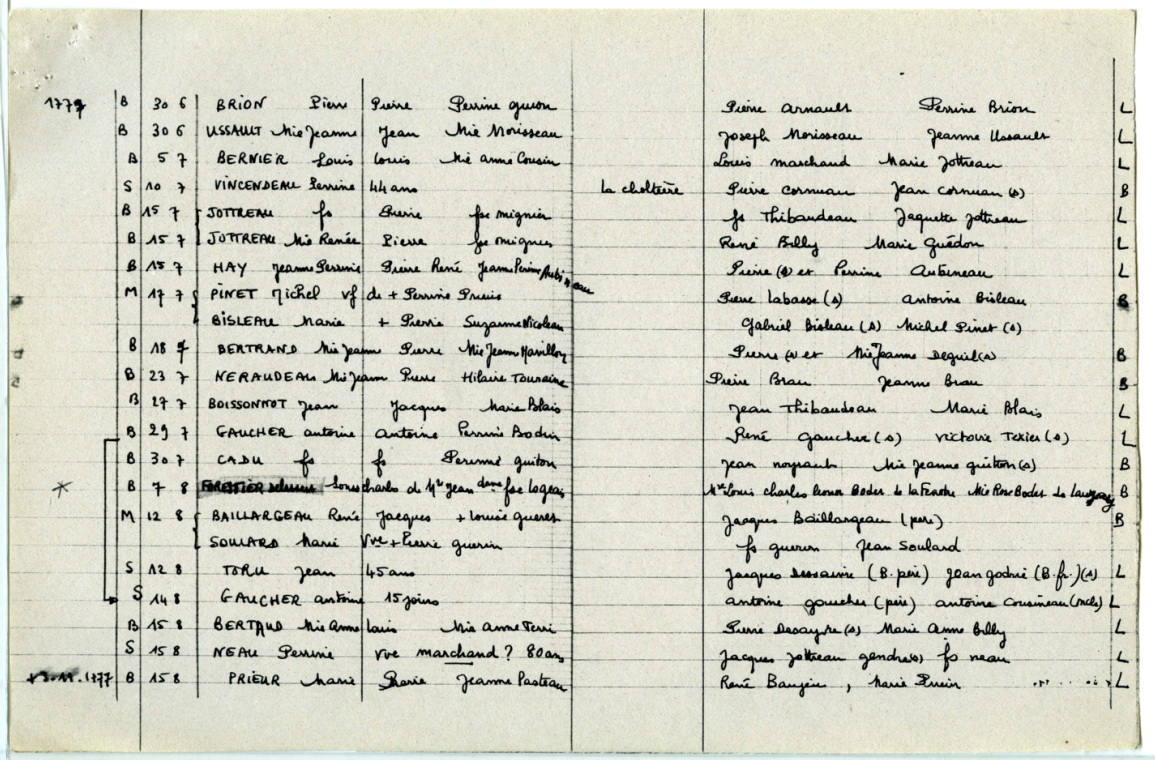 1777 B 30 6 BRION Pierre Pierre Perrine guion Pierre Arnault Perrine Brion L
B 30 6 USSAULT Mie Jeanne Jean Mie Morisseau Joseph Morisseau Jeanne Ussault L
B 5 7 BERNIER Louis Louis Mie anne Cousin Louis marchand Marie Jottreau L
S 10 7 VINCENDEAU Perrine 44 ans La cholterie Pierre cornuau Jean cornuau (s) B
B 15 7 JOTTREAU fs Pierre fse mignier fs Thibaudeau Jaquette jottreau L
B 15 7 JOTTREAU Mie Renée Pierre fse mignier René Billy Marie Guédon L
B 15 7 HAY Jeanne Perrine Pierre René Jeanne Perrine Aubineau Pierre (s) et Perrine Aubineau L
M 17 7 PINET Michel vf de + Perrine Prieur Pierre Labasse (s) Antoine Bisleau B
BISLEAU Marie + Pierre Suzanne Nicoleau Gabriel Bisleau (s) Michel Pinet (s)
B 18 7 BERTRAND Mie Jeanne Pierre Mie Jeanne Pierre (s) et Mie Jeanne Deguil (s) B
B 23 7 NERAUDEAU Mie Jeanne Pierre Hilaire Touraine Pierre Brau Jeanne Brau B
B 27 7 BOISSONNOT Jean Jacques Marie Blais Jean Thibaudeau Marie Blais L
B 29 7 GAUCHER antoine antoine Perrine Bodin René gaucher (s) Victoire Texier (s) L
B 30 7 CADU fs fs Perrine guiton Jean Mie Jeanne guiton (s) B
B 7 8 Louis charles de Mre Jean fse Logeais Mre Louis charles Bodet de la Mie Rose Bodet B
M 12 8 BAILLARGEAU René Jacques + Louise gueret Jacques Baillargeau (père) B
SOULARD Marie Vve + Pierre guerin fs guerin Jean Soulard
S 12 8 TORU Jean 45 ans Jacques (B. père) Jean godrie (B. fr.) (s) L
S 14 8 GAUCHER antoine 15 jours antoine gaucher (père) antoine Cousineau (oncle) L
B 15 8 BERTAUD Mie Anne Louis Mie Anne Terri Pierre Desayre (s) Marie Anne Billy L
S 15 8 NEAU Perrine Vve marchand ? 80 ans Jacques Jottreau gendre (s) fs neau L
+ 3.11.1777 B 15 8 PRIEUR Marie Pierre Jeanne Pasteau René Baugin , Marie L